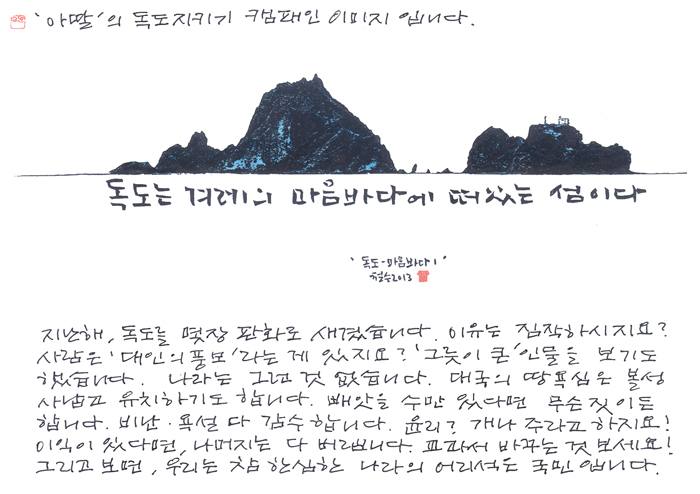 '아딸'의 독도지키기 캠패인 이미지 입니다.
독도는 겨레의 마음바다에 떠있는 섬이다
'독도-마음바다1'
철수2013
지난해, 독도를 몇장 판화로 새겼습니다. 이유는 짐작하시지요?
사람은 '대인의풍모'라는 게 있지요? '그릇이 큰' 인물을 보기도
했습니다. 나라는 그런 것 없습니다. 대국의 땅욕심은 볼성
사납고 유치하기도 합니다. 빼앗을 수만 있다면 무슨짓이든
합니다. 비난·욕설 다 감수합니다. 윤리? 개나 주라고 하지요!
이익이 있다면, 나머지는 다 버립니다. 교과서 바꾸는 것 보세요!
그리고 보면, 우리는 참 한심한 나라의 어리석은 국민 입니다.